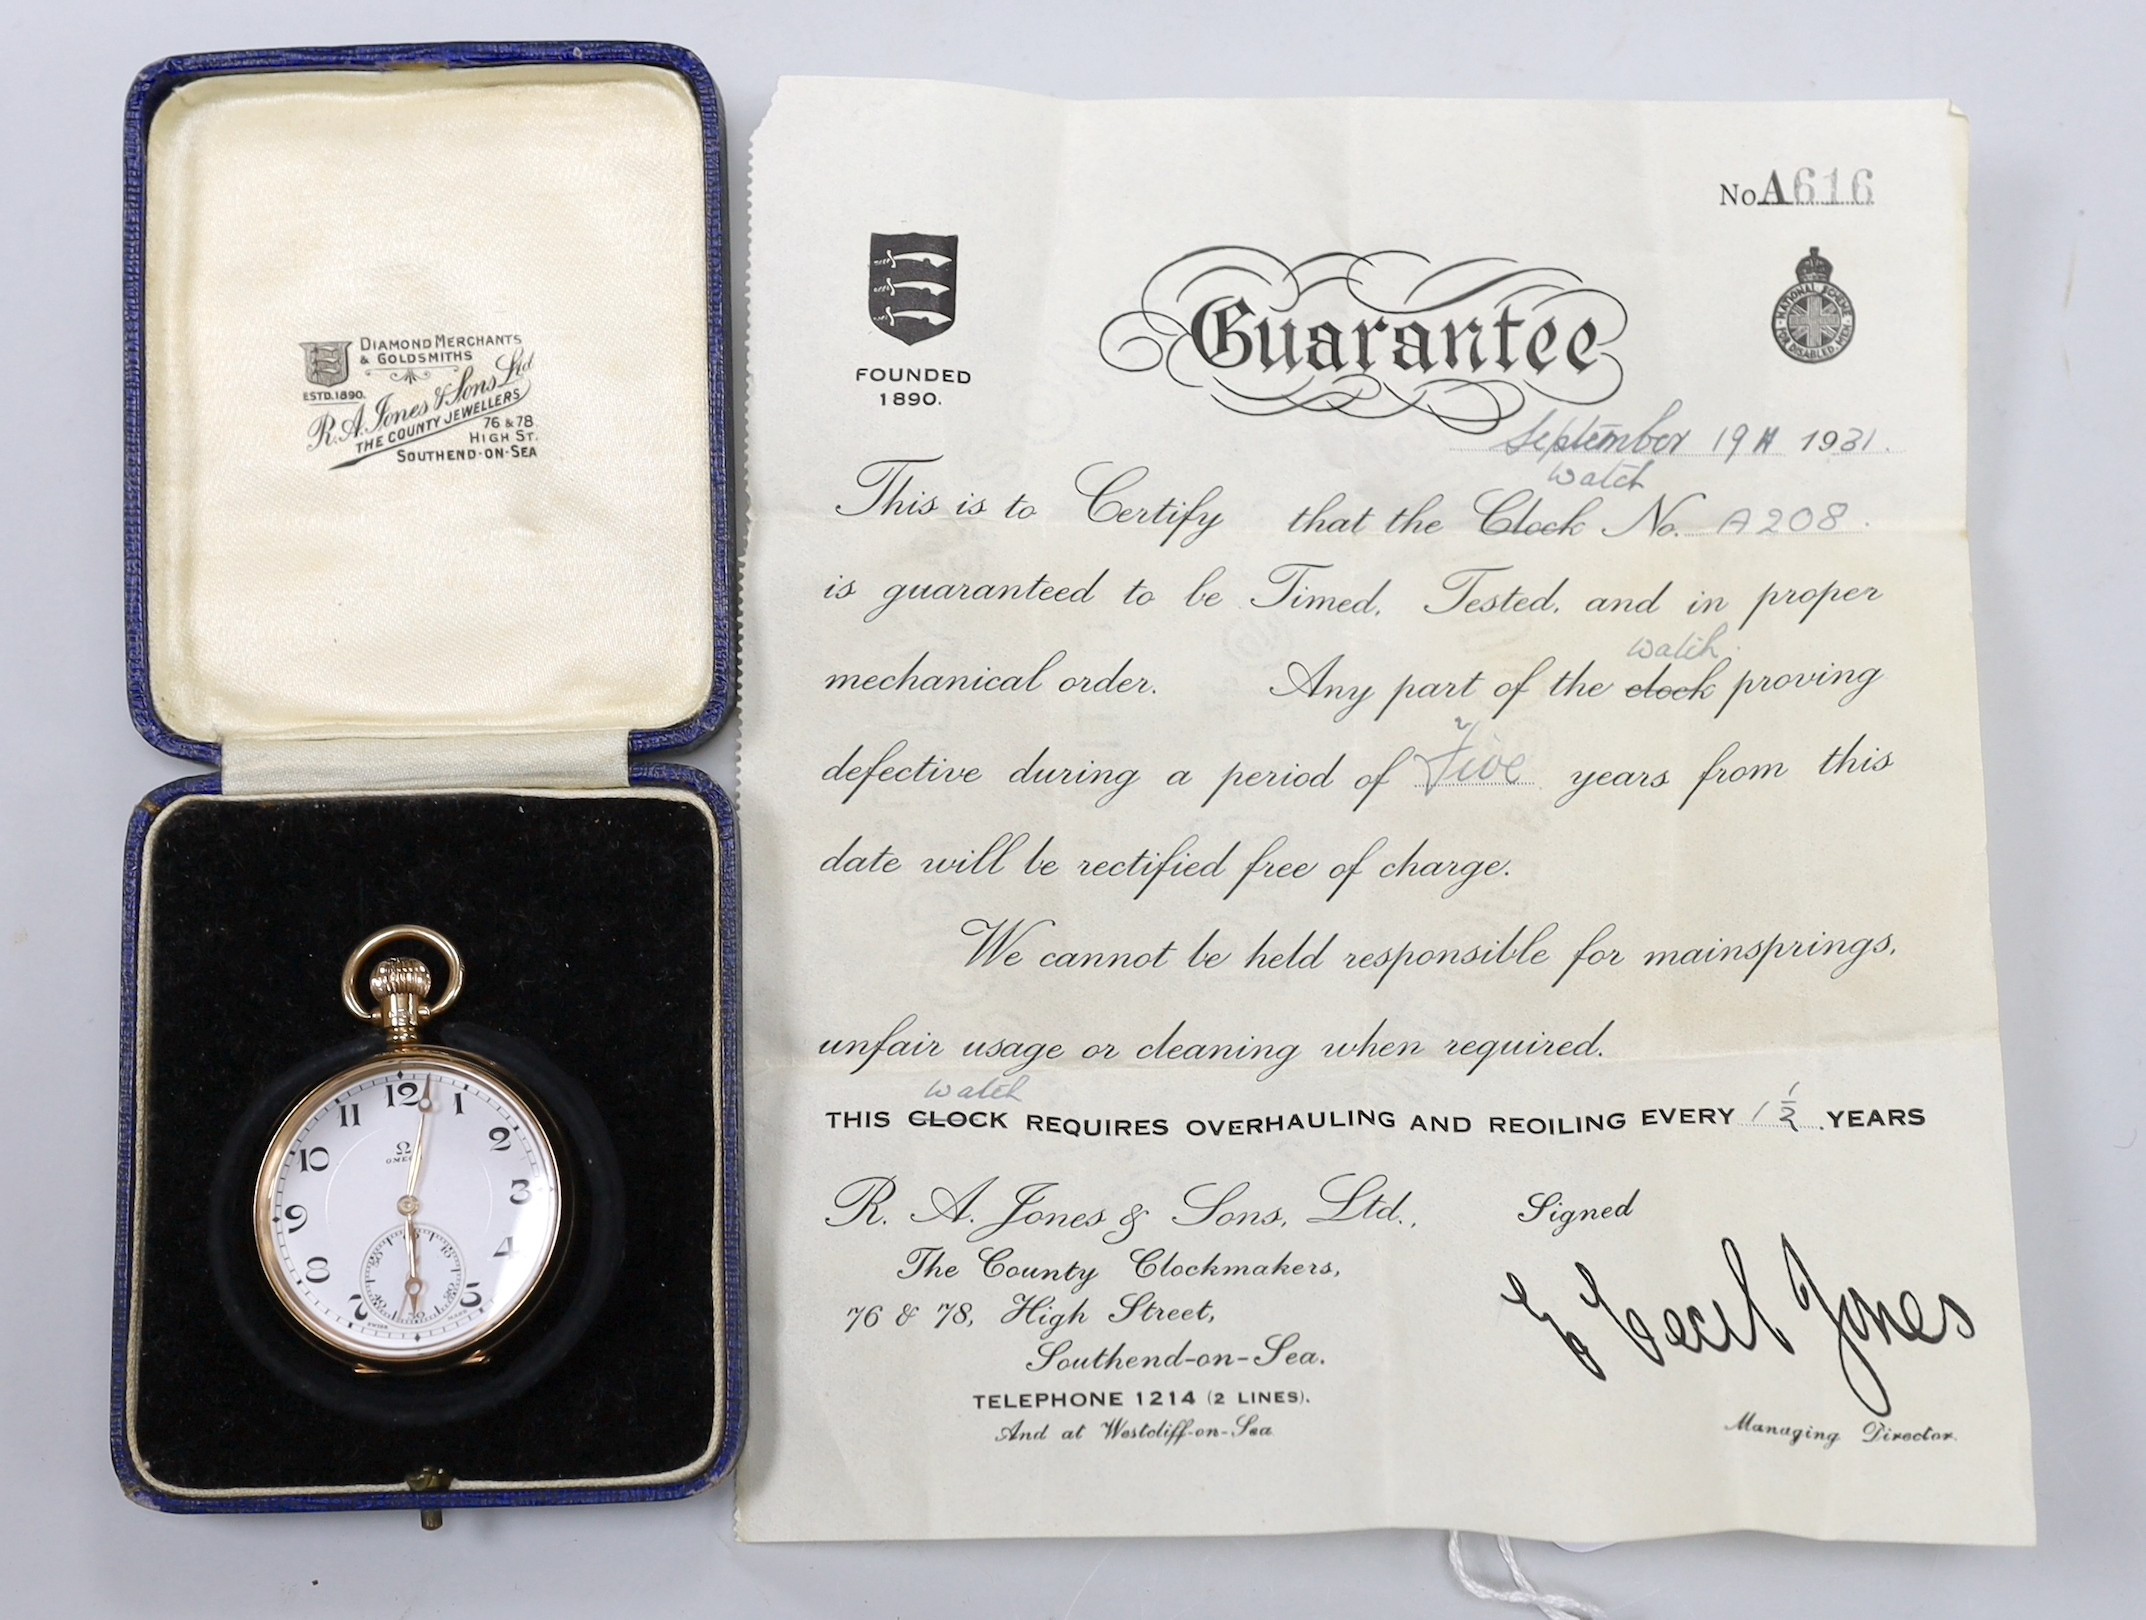 DIAMOND MERCHANTS
& GOLDSMITHS
ESTD. 1890.
R. A. Jones & Sons Ltd
THE COUNTY JEWELLERS
76 & 78
HIGH ST.
SOUTHEND-ON-SEA
12
1
2
3
4
5
7
8
9
10
11
Ω
SWISS
No A616
FOUNDED
1890.
Guarantee
NATIONAL SCHEME
FOR DISABLED MEN
September 19th 1931.
watch
This is to Certify that the Clock No. A208.
is guaranteed to be Timed, Tested, and in proper
watch.
mechanical order. Any part of the clock proving
defective during a period of Five years from this
date will be rectified free of charge.
We cannot be held responsible for mainsprings,
unfair usage or cleaning when required.
watch
THIS CLOCK REQUIRES OVERHAULING AND REOILING EVERY 1½ YEARS
R. A. Jones & Sons, Ltd., Signed
The County Clockmakers,
76 & 78, High Street,
Southend-on-Sea.
E Cecil Jones
TELEPHONE 1214 (2 LINES).
And at Westcliff-on-Sea
Managing Director.